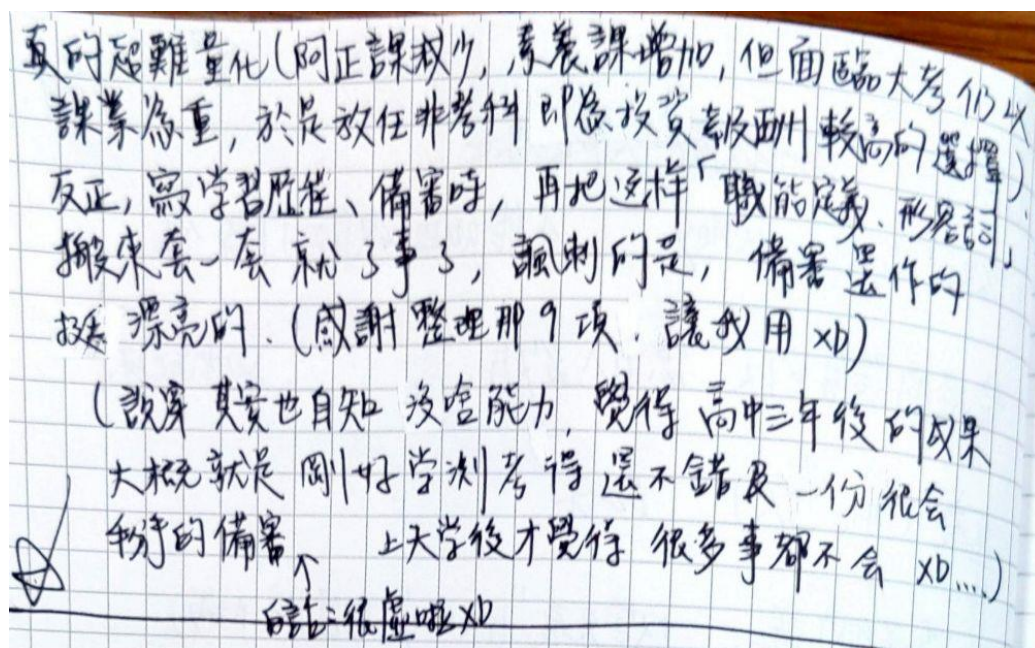 真的超難量化(阿正課減少,素養課增加,但面臨大考仍以
課業為重,於是放任非考科即為投資報酬較高的選擇)
反正,寫学習歷程、備審時,再把这样「職能定義、形容詞」
搬來套一套就了事了,諷刺的是,備審還作的
挺漂亮的.(感謝整理那9項.讓我用xD)
(說穿其實也自知沒啥能力,覺得高中三年後的成果
大概就是剛好学測考得還不錯及一份很会
的備審 上大学後才覺得很多事都不会 xD....)
↑
白話:很虛喔xD